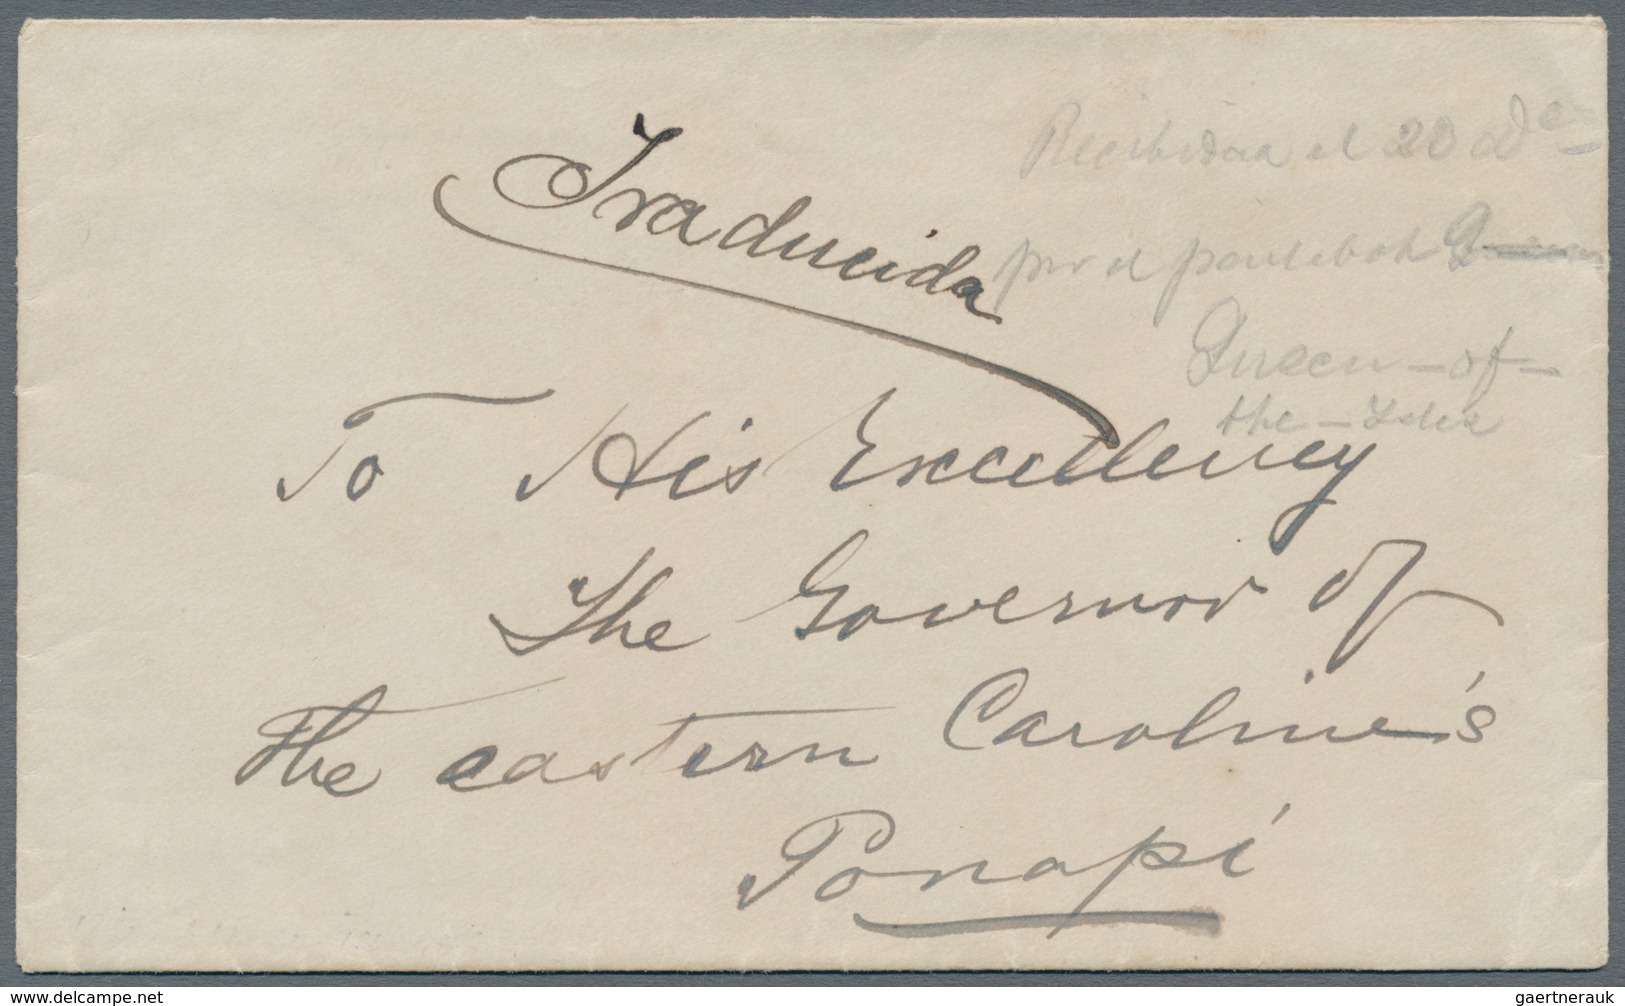 Recibida el 20 De
Traducida
por el pailebot
Queen-of-
the-Isles
To His Excellency
The Governor of
the eastern Caroline's
Ponapi
www.delcampe.net
gaertnerauk